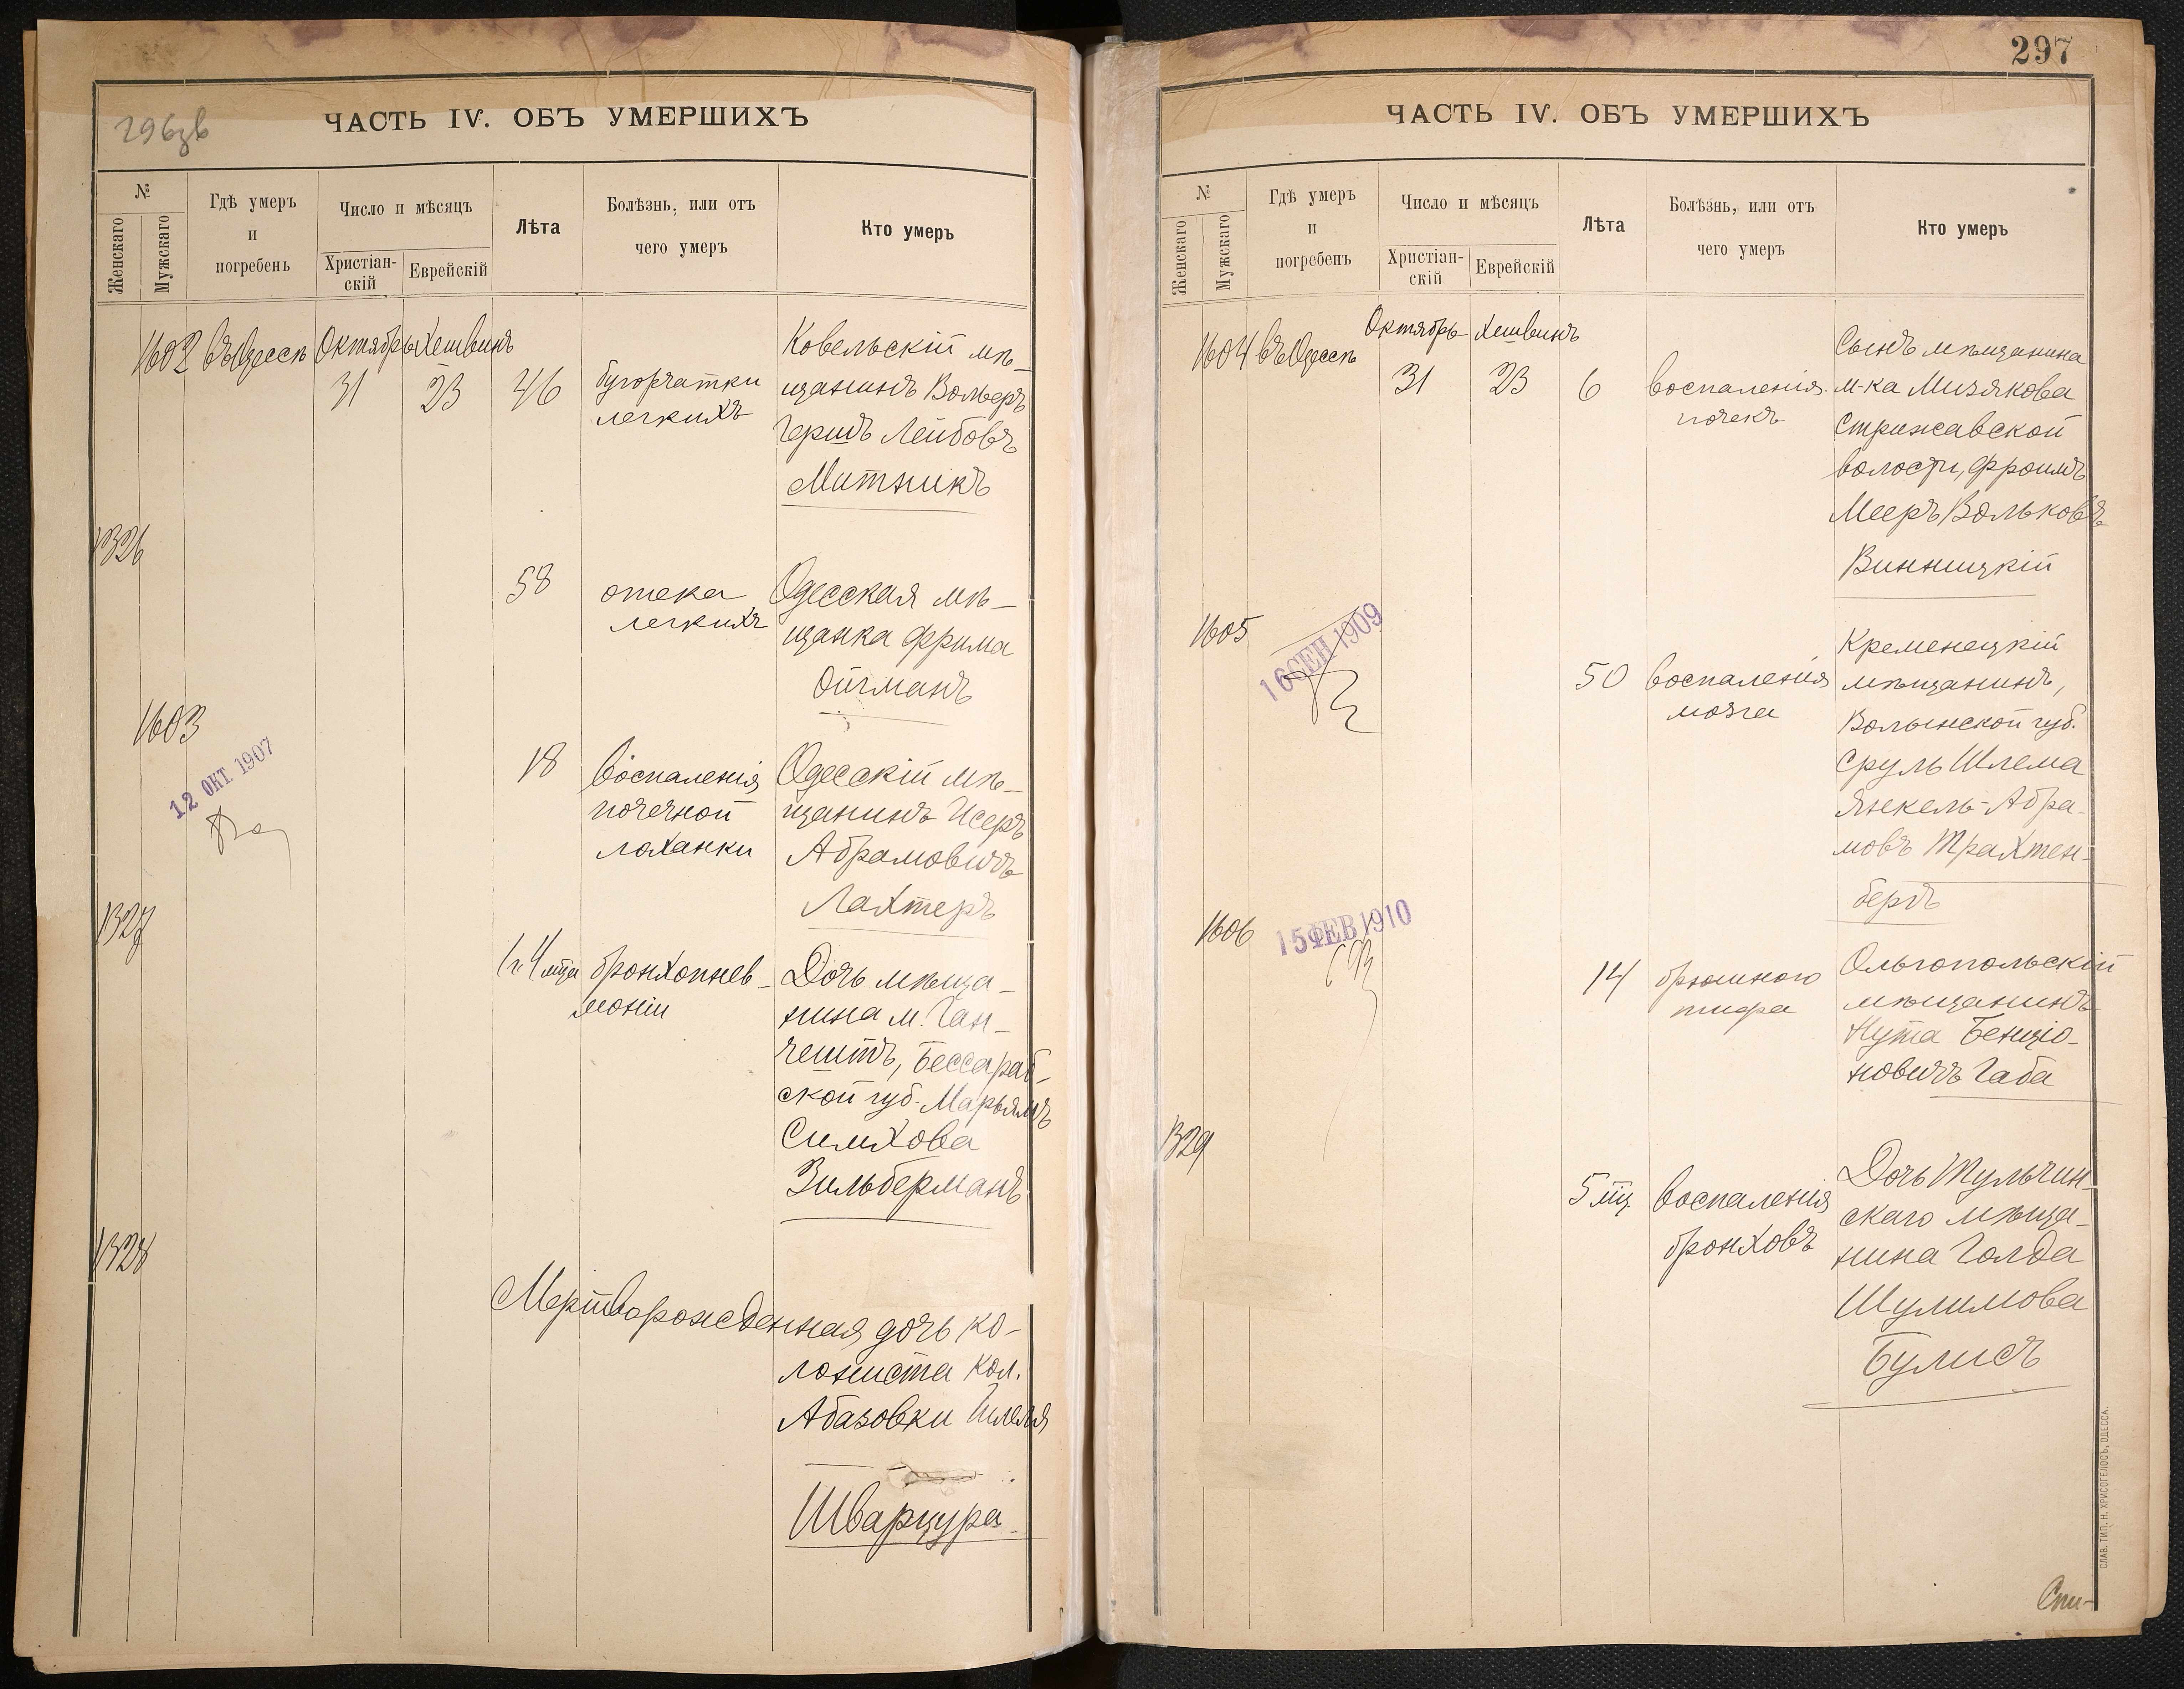 296зв
ЧАСТЬ IV. ОБЪ УМЕРШИХЪ
№
Женскаго
Мужскаго
Гдѣ умеръ
и
погребенъ
Число и мѣсяцъ
Христіан-
скій
Еврейскій
Лѣта
Болѣзнь, или отъ
чего умеръ
Кто умеръ
1602 въ Одессѣ Октябрь Хешвинъ
31 23 46
бугорчатки
легкихъ
Ковельскій мѣ-
щанинъ Вольфъ
Гершъ Лейбовъ
Митникъ
1326
58
отека
легкихъ
Одесская мѣ-
щанка Фрима
Ойгманъ
1603
12 ОКТ. 1907
18
воспаленія
почечной
лоханки
Одесскій мѣ-
щанинъ Исеръ
Абрамовичъ
Лахтеръ
1327
1 г. 4 мца
бронхопнев-
моніи
Дочь мѣща-
нина м. Ган-
чештъ, Бессараб-
ской губ. Марьямъ
Симхова
Зильберманъ
1328
Мертворожденная дочь ко-
лониста кол.
Абазовки
Шварцура
297
ЧАСТЬ IV. ОБЪ УМЕРШИХЪ
№
Женскаго
Мужскаго
Гдѣ умеръ
и
погребенъ
Число и мѣсяцъ
Христіан-
скій
Еврейскій
Лѣта
Болѣзнь, или отъ
чего умеръ
Кто умеръ
1604 въ Одессѣ Октябрь Хешвинъ
31 23 6
воспаленія
почекъ
Сынъ мѣщанина
м-ка Мизякова
Стрижавской
волости, Фроимъ
Мееръ Вольковъ
Винницкій
1605
16 СЕН 1909
50
воспаленія
мозга
Кременецкій
мѣщанинъ,
Волынской губ.
Сруль Шлема
Янкель-Абра-
мовъ Трахтен-
бергъ
1606
15 ФЕВ 1910
14
брюшного
тифа
Ольгопольскій
мѣщанинъ
Нута Бенціо-
новичъ Габа
1329
5 мц.
воспаленія
бронховъ
Дочь Тульчин-
скаго мѣща-
нина Голда
Шулимова
Булисъ
СЛАВ. ТИП. Н. ХРИСОГЕЛОСЪ, ОДЕССА.
Спи-